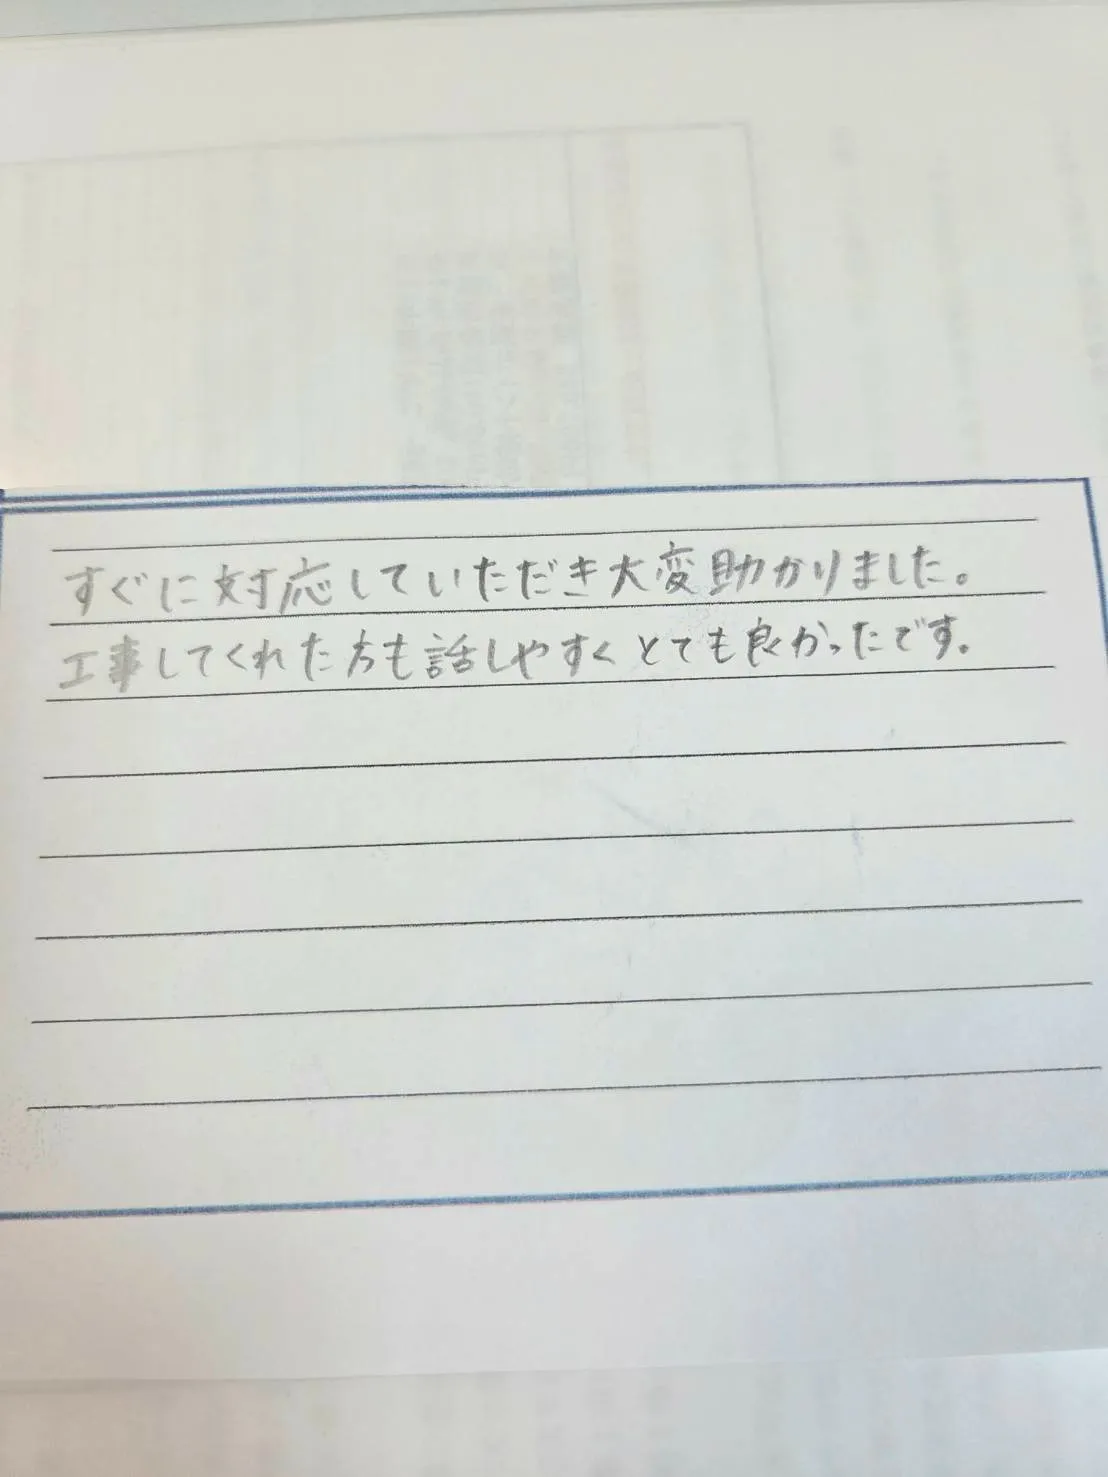 すぐに対応していただき大変助かりました。
工事してくれた方も話しやすくとても良かったです。